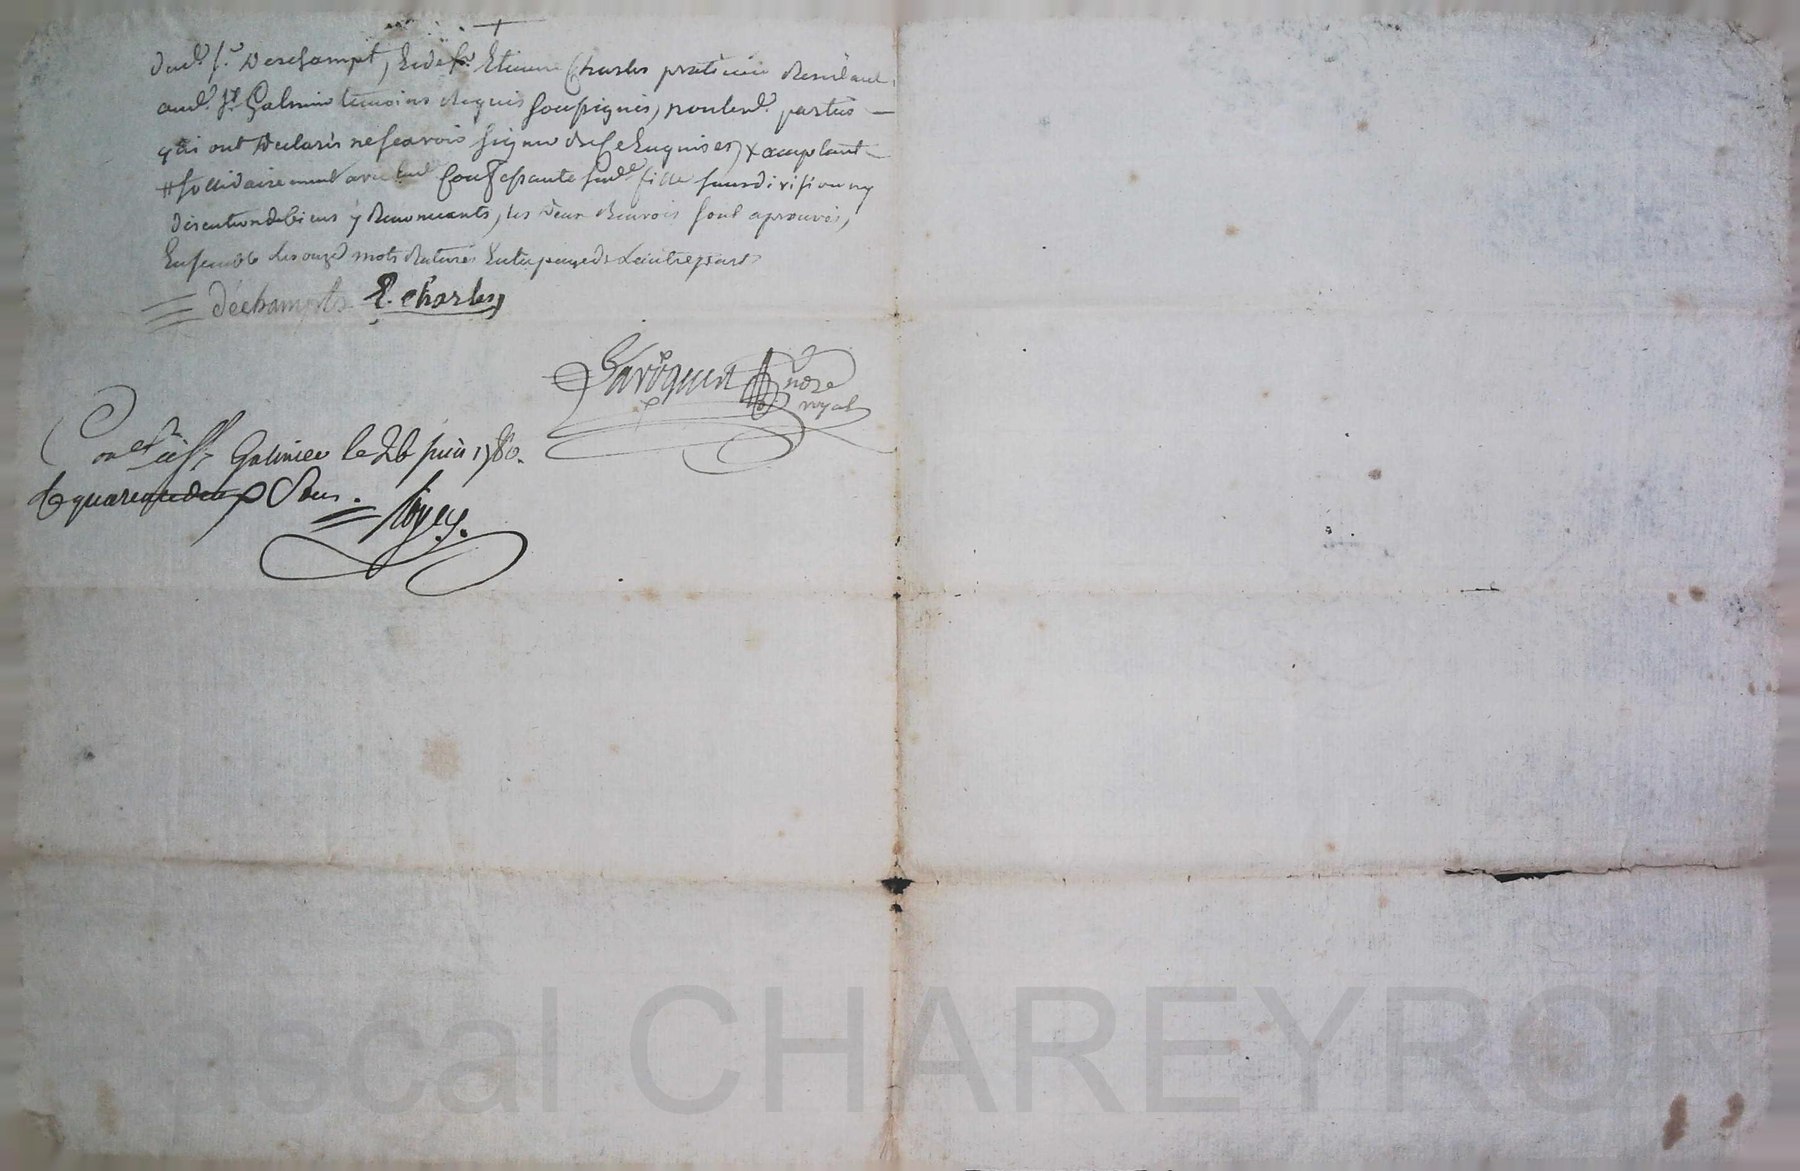 dud. Sr. Deschampt, Et de Sr. Etienne Charles praticien Residant
aud. St. Galmier temoins Requis soussignés, non lesd. parties
qui ont declarés ne scavoir signer de ce Enquises, x acceptant
# sollidairement avec lad. constituante sad. fille sans division ny
discution de biens y Renoncants, les deux Renvois sont aprouvés,
Ensemble les onze mots Raturés En la page de L'autre part
déchampts E. charles
nore
royal
Con.lé à St. Galmier le 26 juin 1780.
quarante deux Sous.
Pascal CHAREYRON